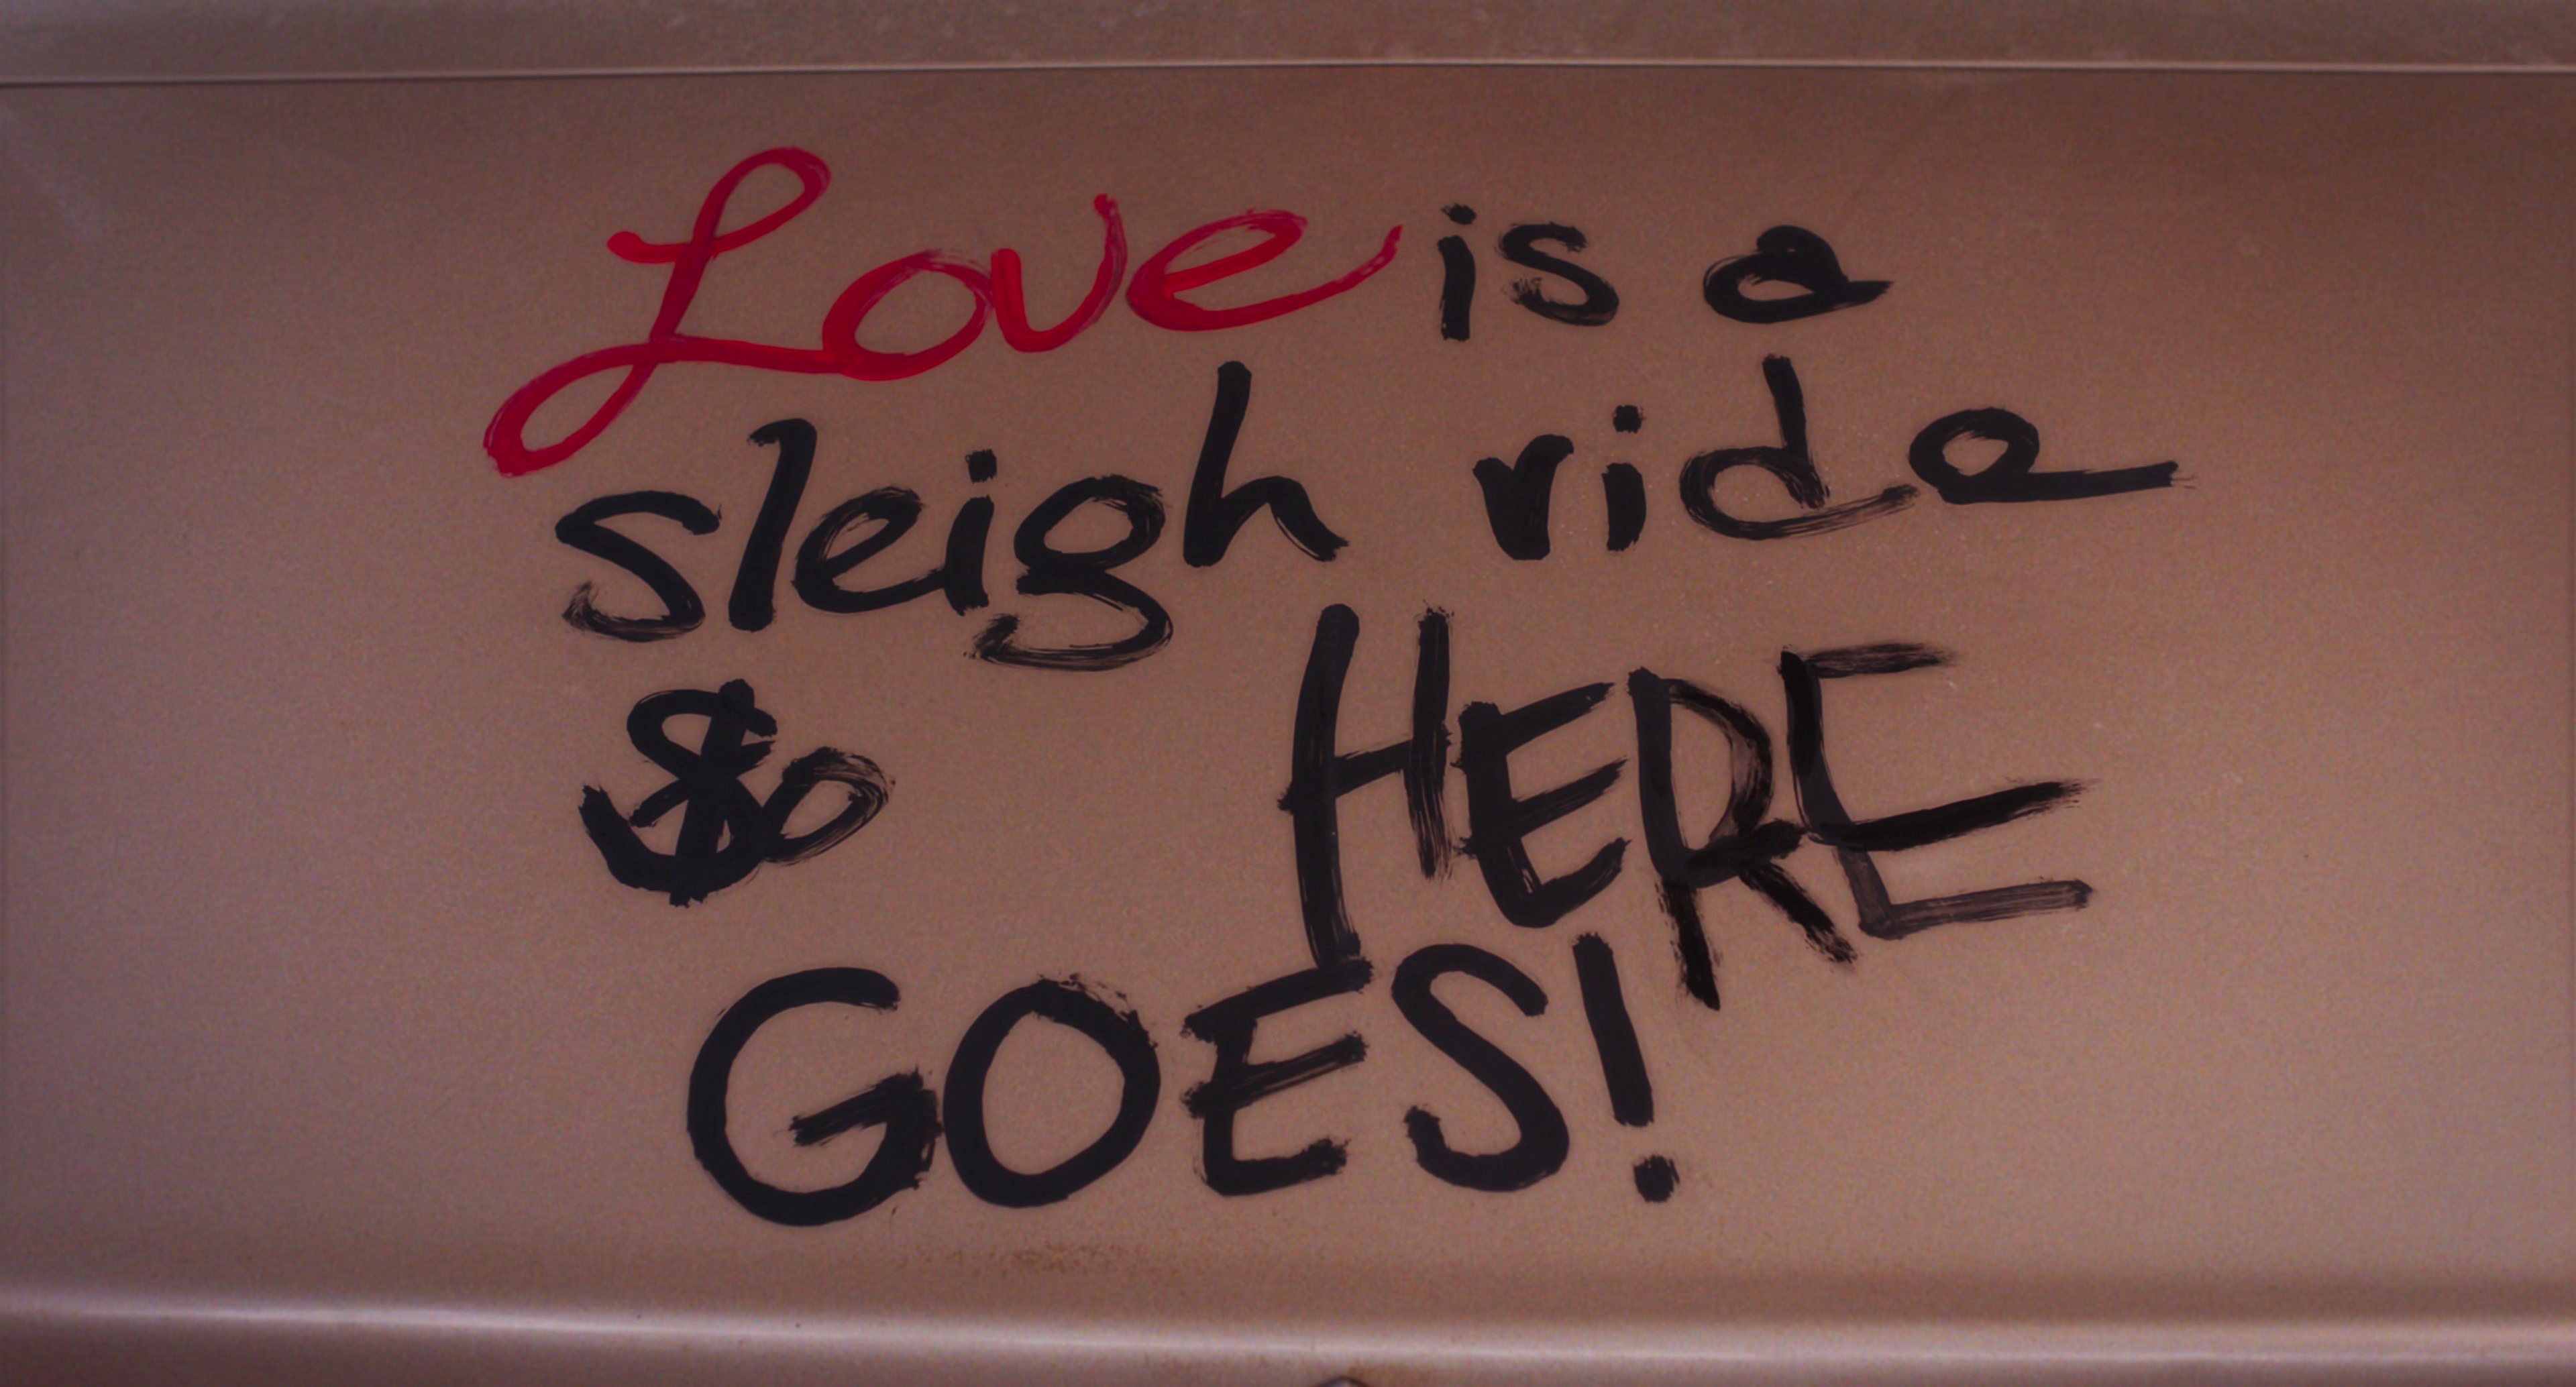 Love is a
sleigh ride
$o HERE
GOES!